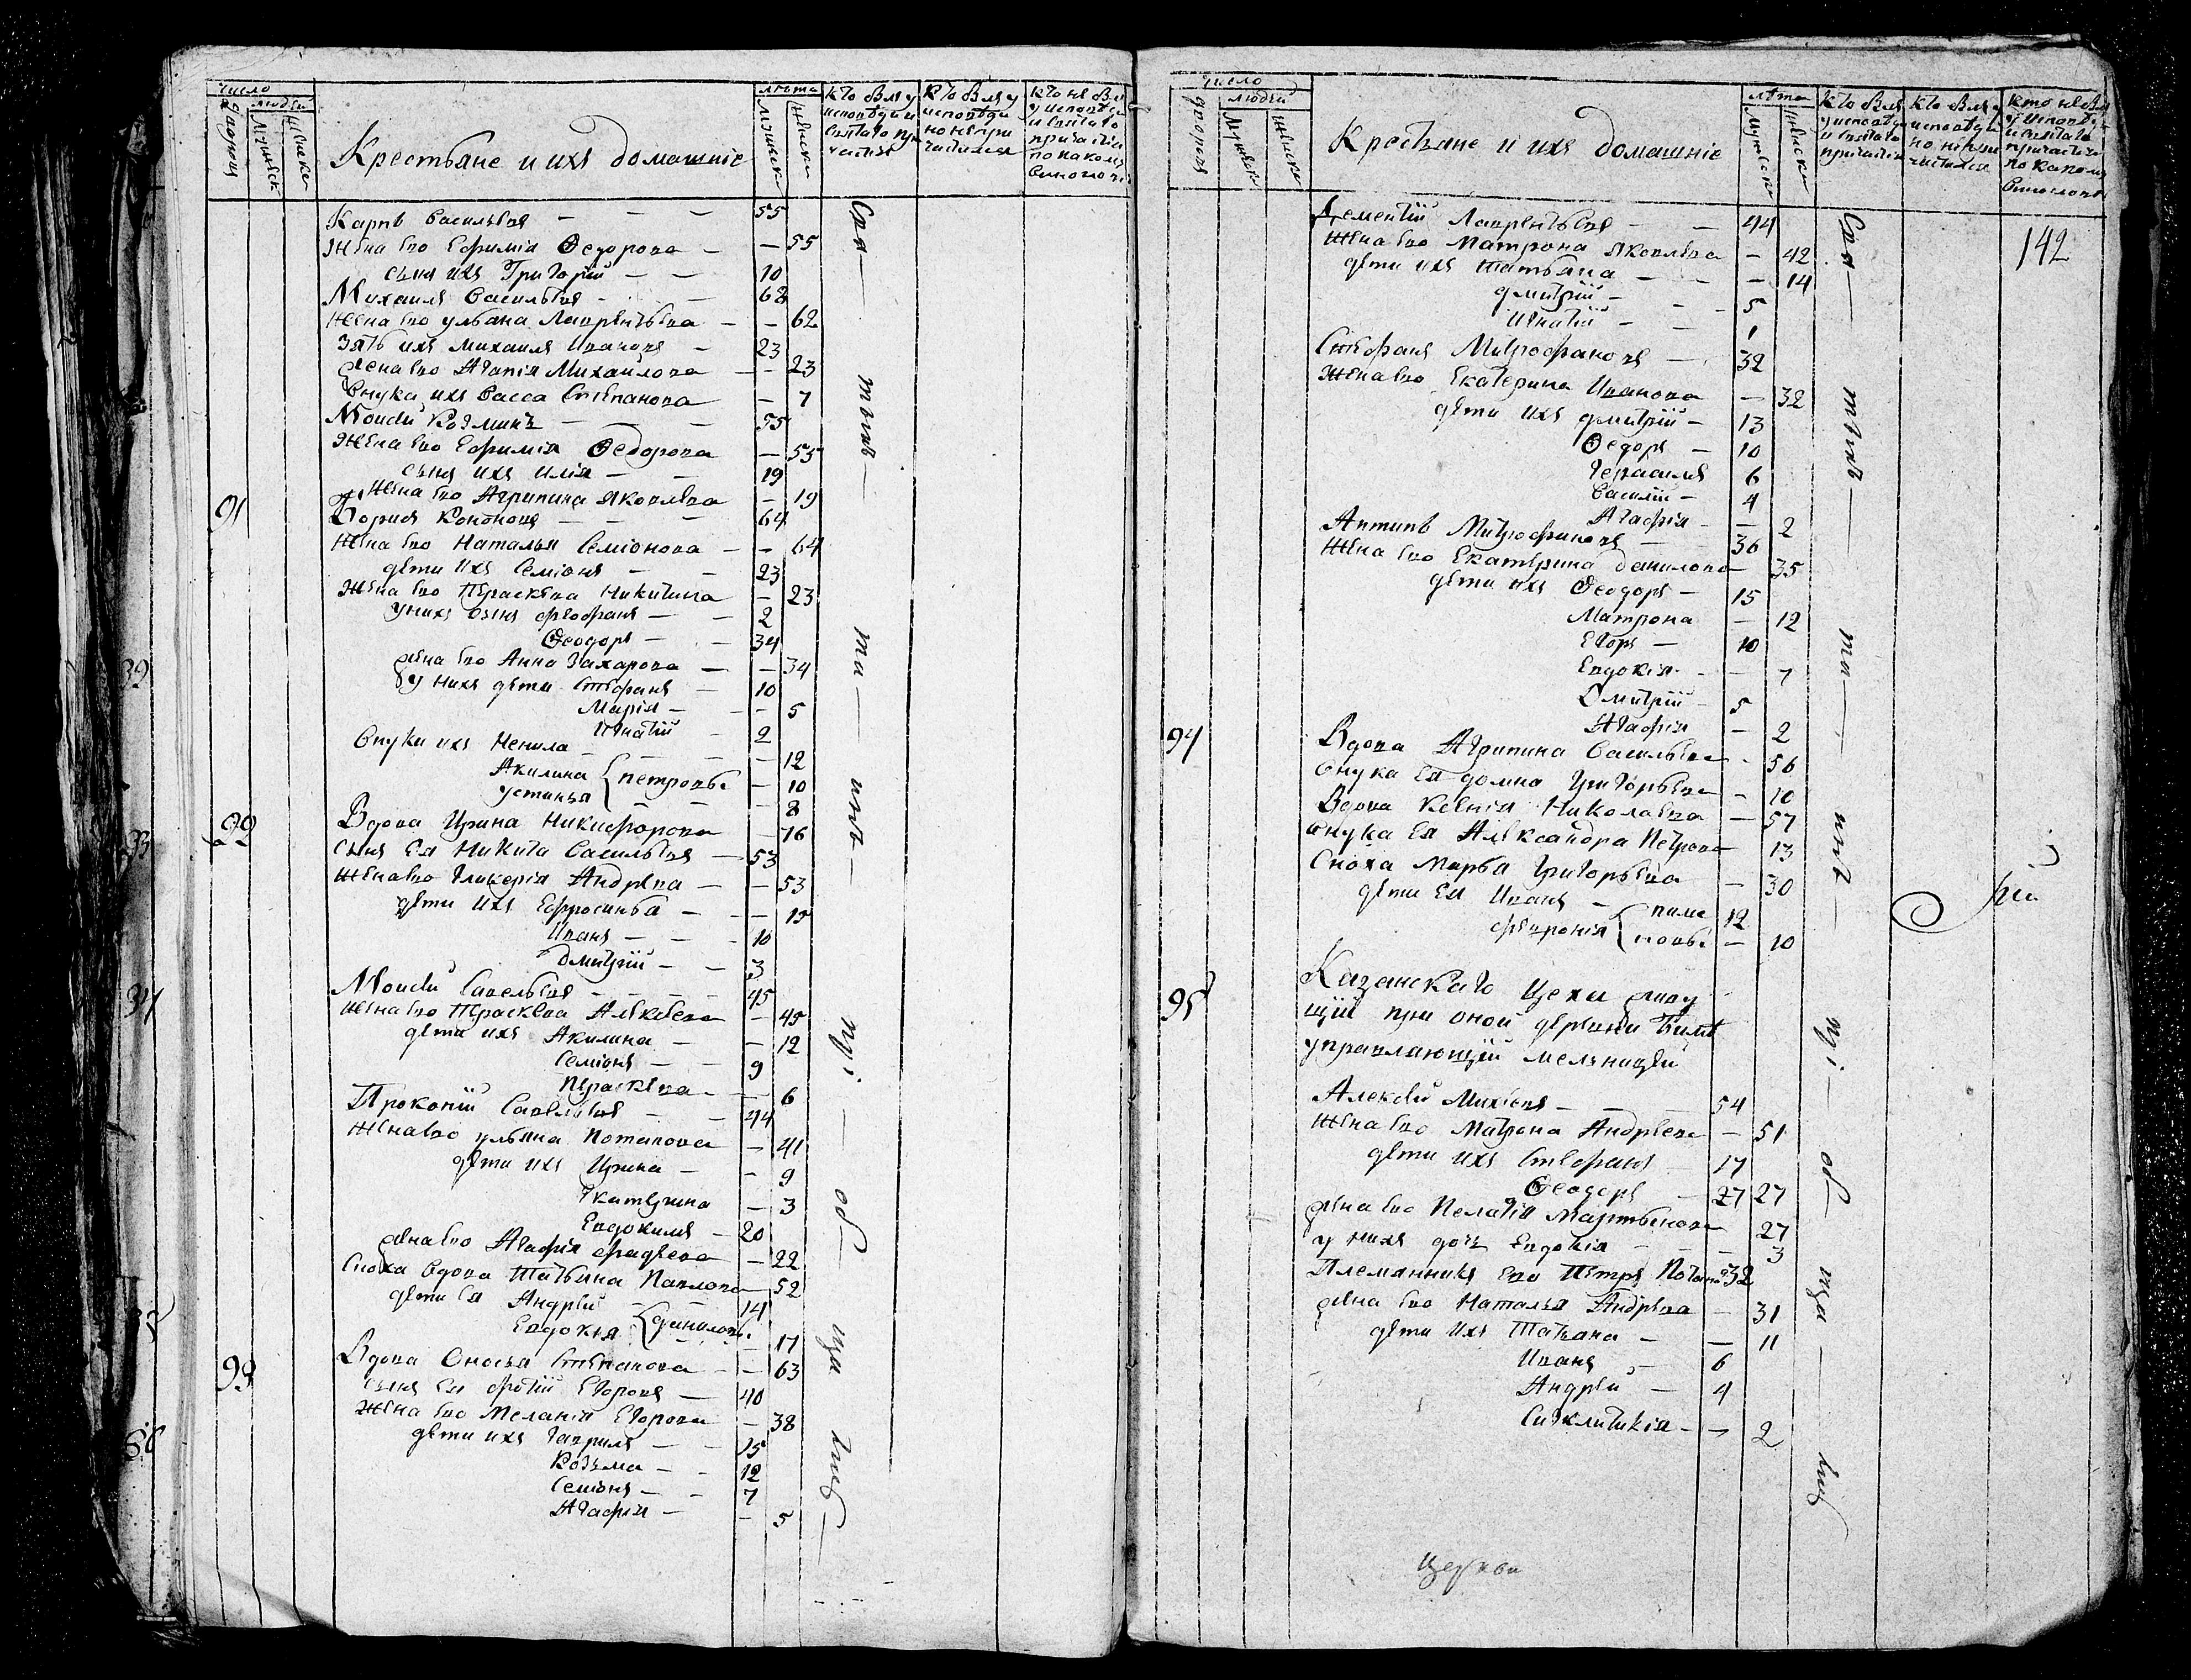 число
людей
дворовъ
мужеск
женске
Крестьяне и ихъ домашніе
лѣта
мужеска
женска
Карпъ Васильевъ — — — 55
Жена ево Ефимія Ѳедорова — — 55
сынъ ихъ Григорій — — 10
Михаилъ Васильевъ — — 68
Жена ево Ульяна Лаврентьева — — 62
Зять ихъ Михаилъ Ивановъ — 23
Жена ево Агапія Михайлова — — 23
Внука ихъ Васса Степанова — 7
Моисей Козминъ — — — 55
Жена ево Ефимія Ѳедорова — 55
сынъ ихъ Илія — — 19
Жена ево Агрипина Яковлева — 19
91 Борисъ Кононовъ — — — 64
Жена ево Наталья Семіонова — — 64
дети ихъ Семіонъ — — 23
Жена ево Пераскева Никитина — 23
у нихъ сынъ Феофанъ — — 2
Ѳеодоръ — — 34
Жена ево Анна Захарова — — 34
у нихъ дети Стефанъ — 10
Марія — — 5
Игнатій — 2
Внуки ихъ Ненила — — — 12
Акилина { Петровы — 10
Устинья — — — 8
92 Вдова Ирина Никифорова — 76
сынъ ея Никита Васильевъ — 53
Жена ево Гликерія Андреева — — 53
дети ихъ Ефросинья — — — 15
Иванъ — — — 10
Дмитрій — — 3
Моисей Савельевъ — — — — 45
Жена ево Пераскева Алексеева — 45
дети ихъ Акилина — — 12
Семіонъ — — 9
Пераскева — — — 6
Прокопій Савельевъ — — 44
Жена ево Ульяна Потапова — 41
дети ихъ Ирина — — 9
Екатерина — 3
Евдокимъ — 20
Жена ево Агафія Фадеева — 22
Сноха вдова Татьяна Павлова — 52
дети ея Андрей — — 14
Евдокія { Даниловы — 17
93 Вдова Онисья Степанова — — 63
сынъ ея Фотій Егоровъ — 40
Жена ево Меланія Егорова — 38
дети ихъ Гаврилъ — — 15
Козьма — — 12
Семіонъ — — 7
Агафія — — 5
Свя — тыхъ — та — инъ — прі — об — ща — лись —
число
людей
дворовъ
мужеск
женске
Крестьяне и ихъ домашніе
лѣта
мужеска
женска
142
Дементій Лаврентьевъ — — 44
Жена ево Матрона Яковлева — 42
дети ихъ Татьяна — — — 14
Дмитрій — — — 5
Игнатій — — 1
Стефанъ Митрофановъ — 32
Жена ево Екатерина Иванова — 32
дети ихъ Дмитрій — 13
Ѳедоръ — 10
Герасимъ 6
Василій — 4
Агафія — — 2
Антипъ Митрофановъ — — 36
Жена ево Екатерина Данилова — 35
дети ихъ Ѳеодоръ — 15
Матрона — 12
Егоръ — 10
Евдокія — — 7
Дмитрій — 5
Агафія — 2
94 Вдова Агрипина Васильева — 56
Внука ея Домна Григорьева — 10
Вдова Ксенія Николаева — 57
Внука ея Александра Петрова 13
Сноха Марѳа Григорьева — 30
дети ея Иванъ — 12
Февронія { — 10
95 Казанскаго Цеха живу
щій при оной деревни
управляющій мельницей
Алексей Михеевъ — — — 54
Жена ево Матрона Андреева — 51
дети ихъ Стефанъ — 17
Ѳеодоръ — 27 27
Жена ево Пелагія Мартынова — 27
у нихъ дочь Евдокія — — — 3
Племянникъ ево Петръ 32
Жена ево Наталья Андреева — 31
дети ихъ Татьяна — — 11
Иванъ — 6
Андрей — 4
Синклитикія — — 2
Свя — тыхъ — та — инъ — прі — об — ща — лись
Церкви